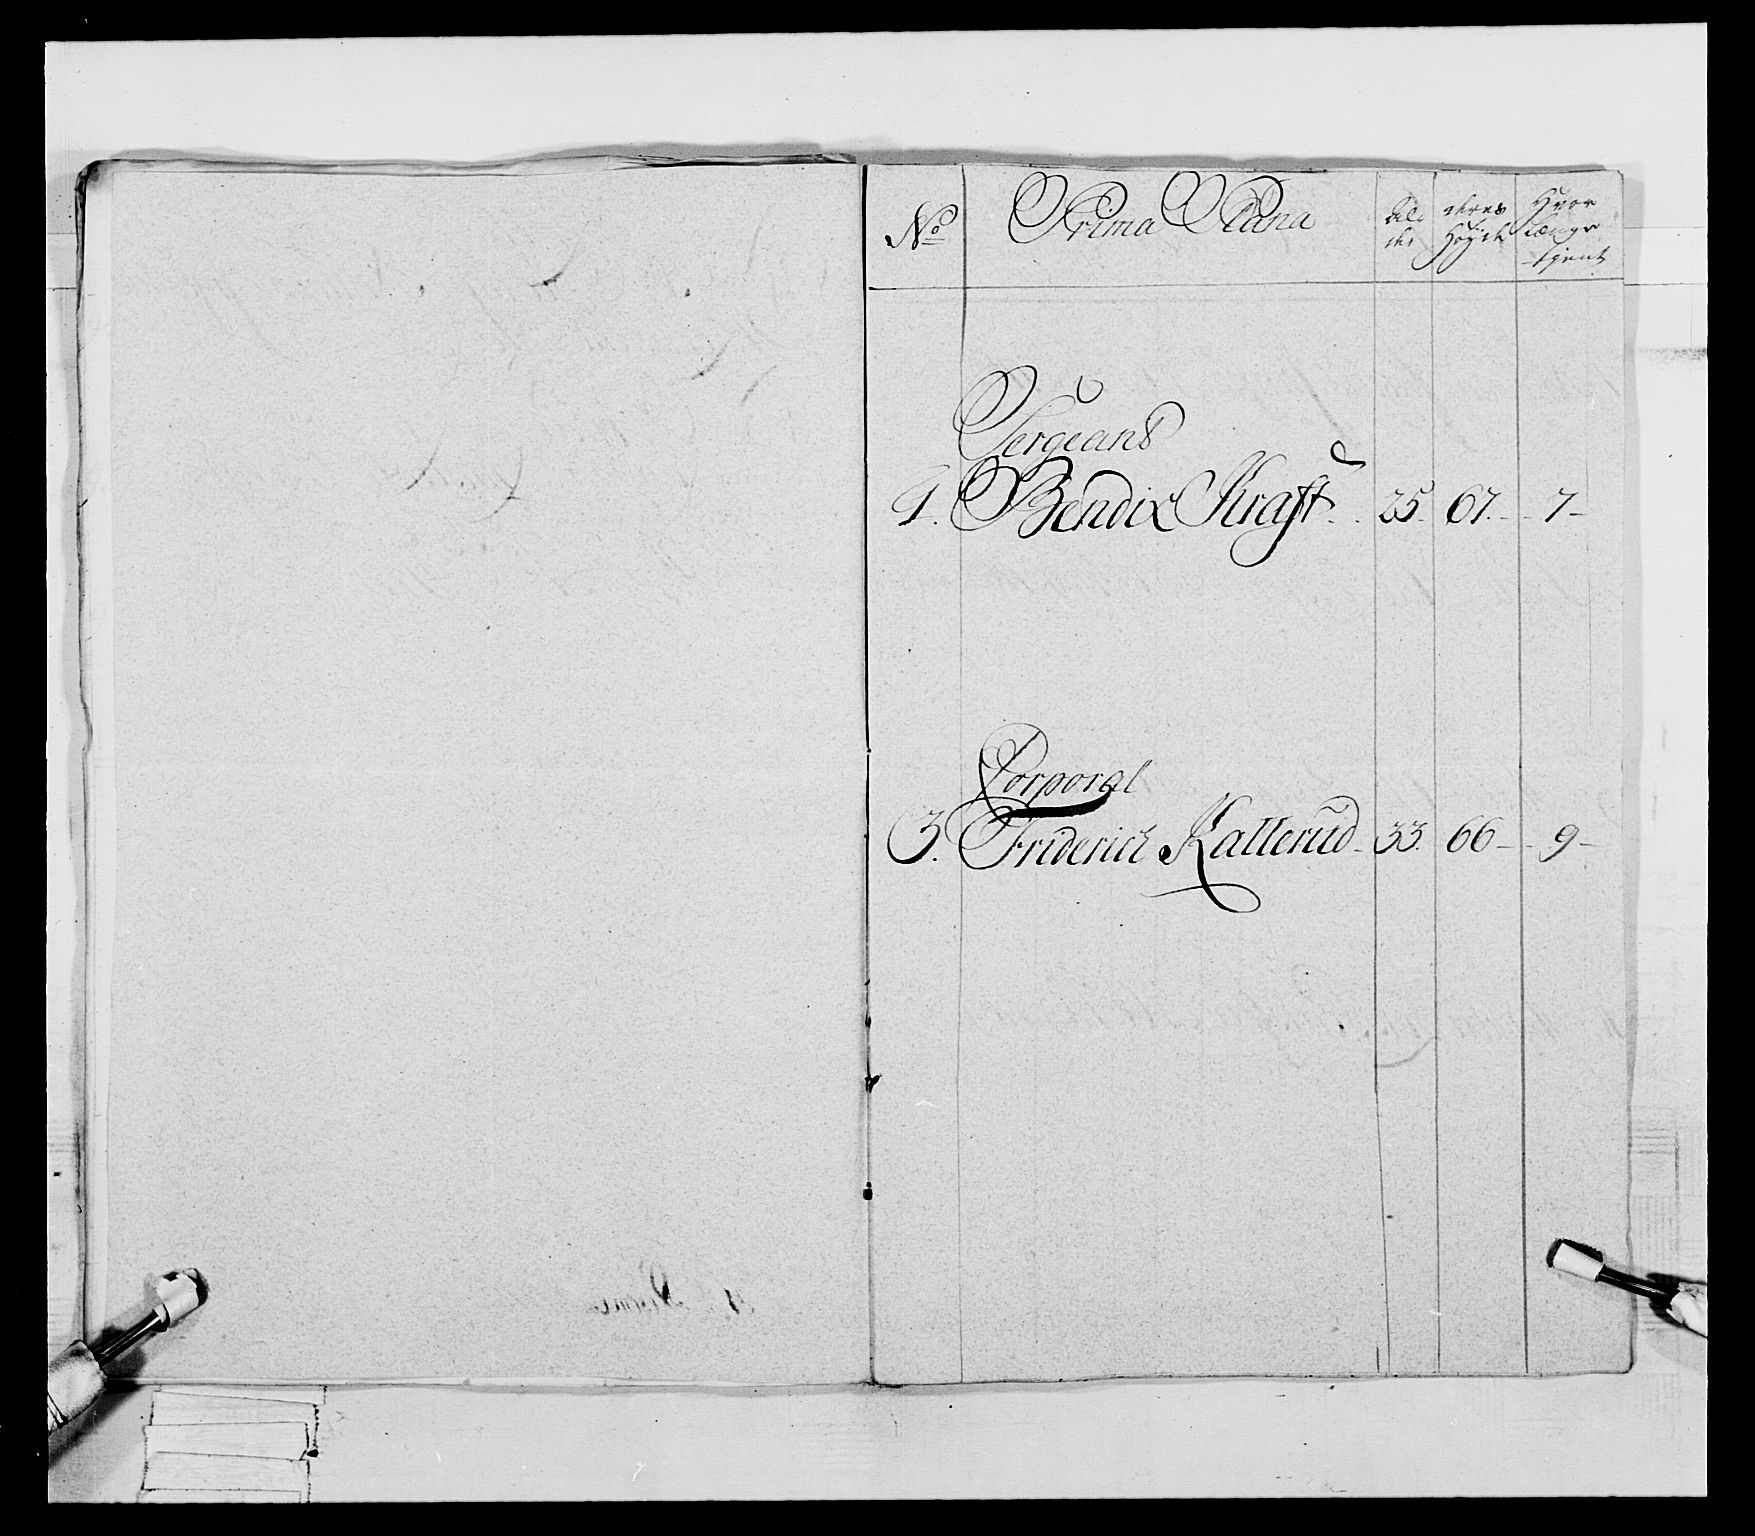 No Prima Plana Alder deres Høyde Hvor Længe tjent
Sergeant
1. Bendix Kraft 25. 67. 7
Corporal
3. Friderich Kallerud 33. 66 9